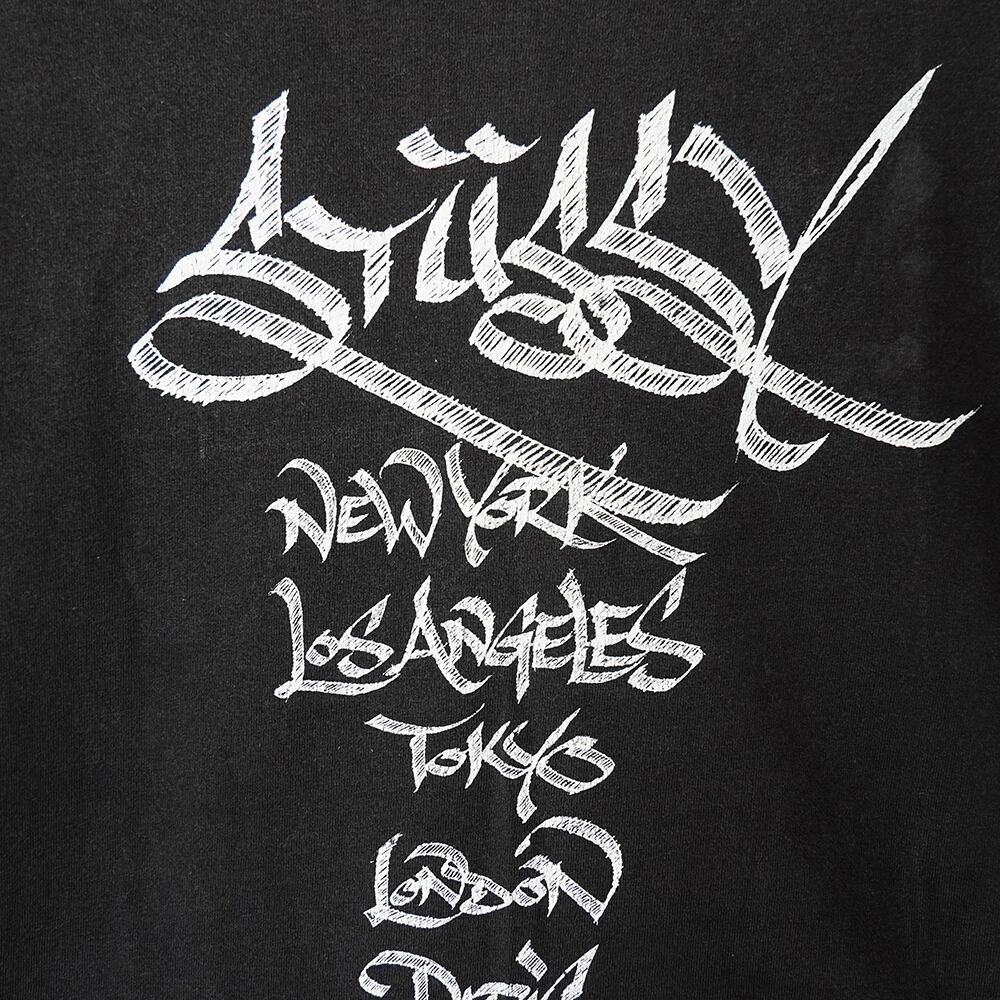 Stüssy
New York
Los Angeles
Tokyo
London